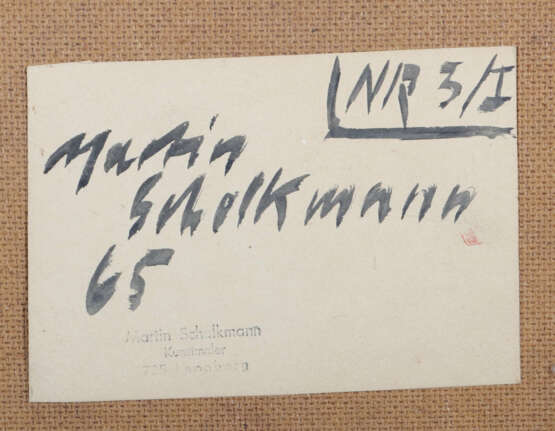 NR 3/I
Martin
Scholkmann
65
Martin Scholkmann
Kunstmaler
725 Leonberg